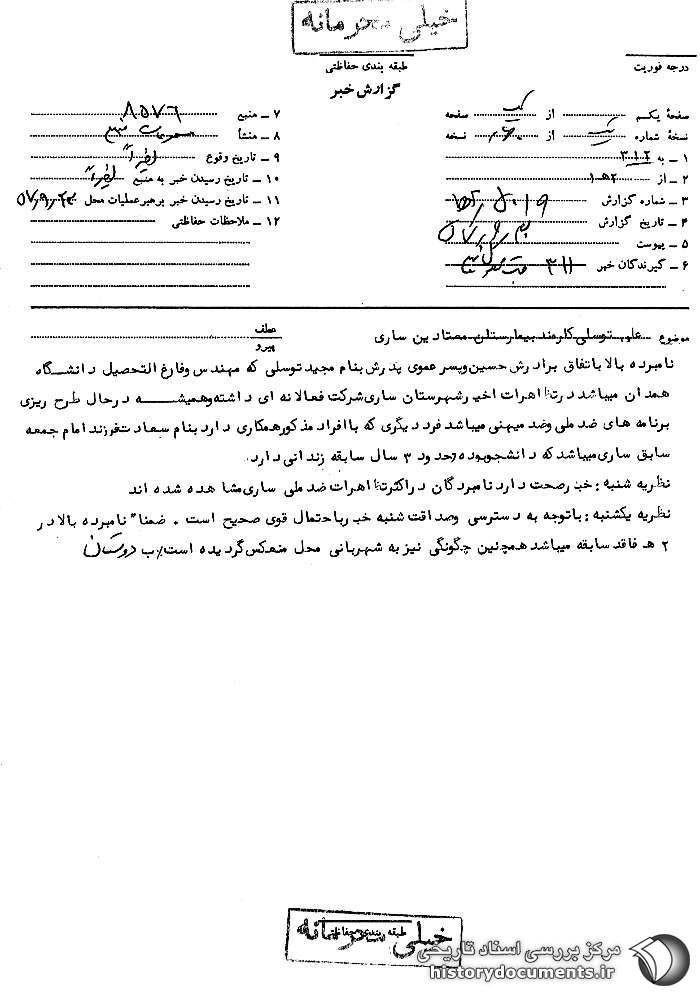 خیلی محرمانه
طبقه بندی حفاظتی
درجه فوریت
گزارش خبر
صفحهٔ یکم از یک صفحه
نسخهٔ شماره یک از نسخه
۱ ـ به ۳۱۲
۲ ـ از
۳ ـ شماره گزارش
۴ ـ تاریخ گزارش
۵ ـ پیوست
۶ ـ گیرندگان خبر ۳۱۱
۷ ـ منبع ۸۵۷۶
۸ ـ منشأ
۹ ـ تاریخ وقوع اخیراً
۱۰ ـ تاریخ رسیدن خبر به منبع اخیراً
۱۱ ـ تاریخ رسیدن خبر برهبر عملیات محل
۱۲ ـ ملاحظات حفاظتی
موضوع توسلی کارمند بیمارستان معتادین ساری
عطف
پیرو
نامبرده بالا باتفاق برادرش حسین وپسر عموی پدرش بنام مجید توسلی که مهندس وفارغ التحصیل دانشگاه
همدان میباشد درتظاهرات اخیر شهرستان ساری شرکت فعالانه ای داشته وهمیشه درحال طرح ریزی
برنامه های ضد ملی وضد میهنی میباشد فرد دیگری که باافراد مذکور همکاری دارد بنام سعادت فر فرزند امام جمعه
سابق ساری میباشد که دانشجو بوده وحدود ۳ سال سابقه زندانی دارد.
نظریه شنبه : خبر صحت دارد نامبردگان دراکثر تظاهرات ضد ملی ساری مشاهده شده اند
نظریه یکشنبه : باتوجه به دسترسی وصداقت شنبه خبر باحتمال قوی صحیح است . ضمنا" نامبرده بالا در
۲ هـ فاقد سابقه میباشد همچنین چگونگی نیز به شهربانی محل منعکس گردیده است
طبقه بندی حفاظتی
خیلی محرمانه
مرکز بررسی اسناد تاریخی
historydocuments.ir